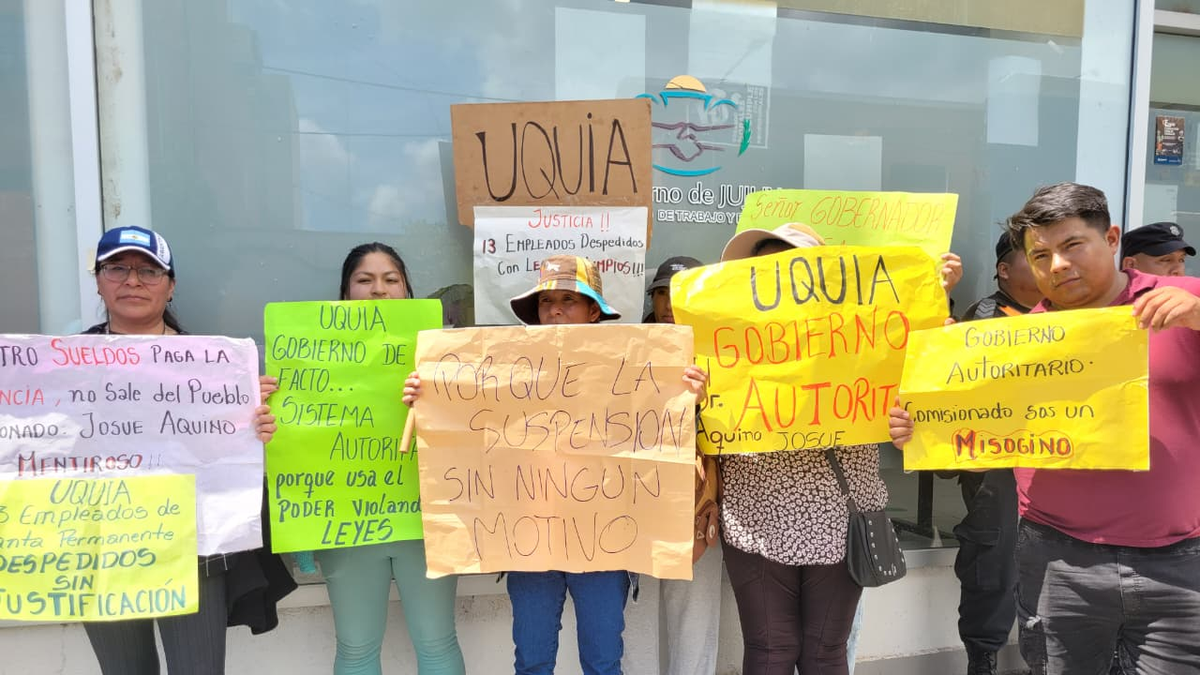 UQUIA
JUSTICIA !!
13 EMPLEADOS Despedidos
Con
!!!
rno de JUJUY
DE TRABAJO Y
Señor GOBERNADOR
TRO SUELDOS PAGA LA
NCIA, no SALE del PUEBLO
ONADO. JOSUE AQUINO
MENTIROSO !!
UQUIA
3 Empleados de
anta Permanente
DESPEDIDOS
SIN
JUSTIFICACIÓN
UQUIA
GOBIERNO DE
FACTO...
SISTEMA
AUTORITA
porque usa el
PODER VIOLAND
LEYES
PORQUE LA
SUSPENSION
SIN NINGUN
MOTIVO
UQUIA
GOBIERNO
AUTORITA
r.
Aquino JOSUE
GOBIERNO
AUTORITARIO.
Comisionado sos un
MISOGINO